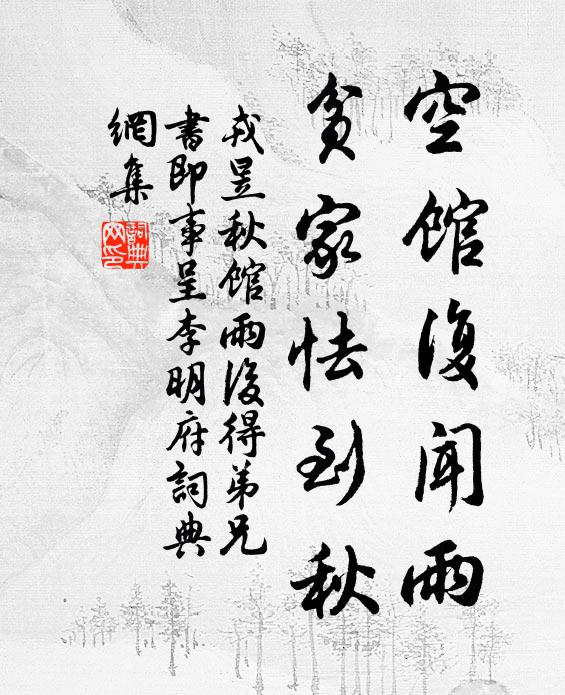 空館復聞雨
貧家怯到秋
戎昱秋館雨後得弟兄
書即事呈李明府詞典
網集
詞典
網印